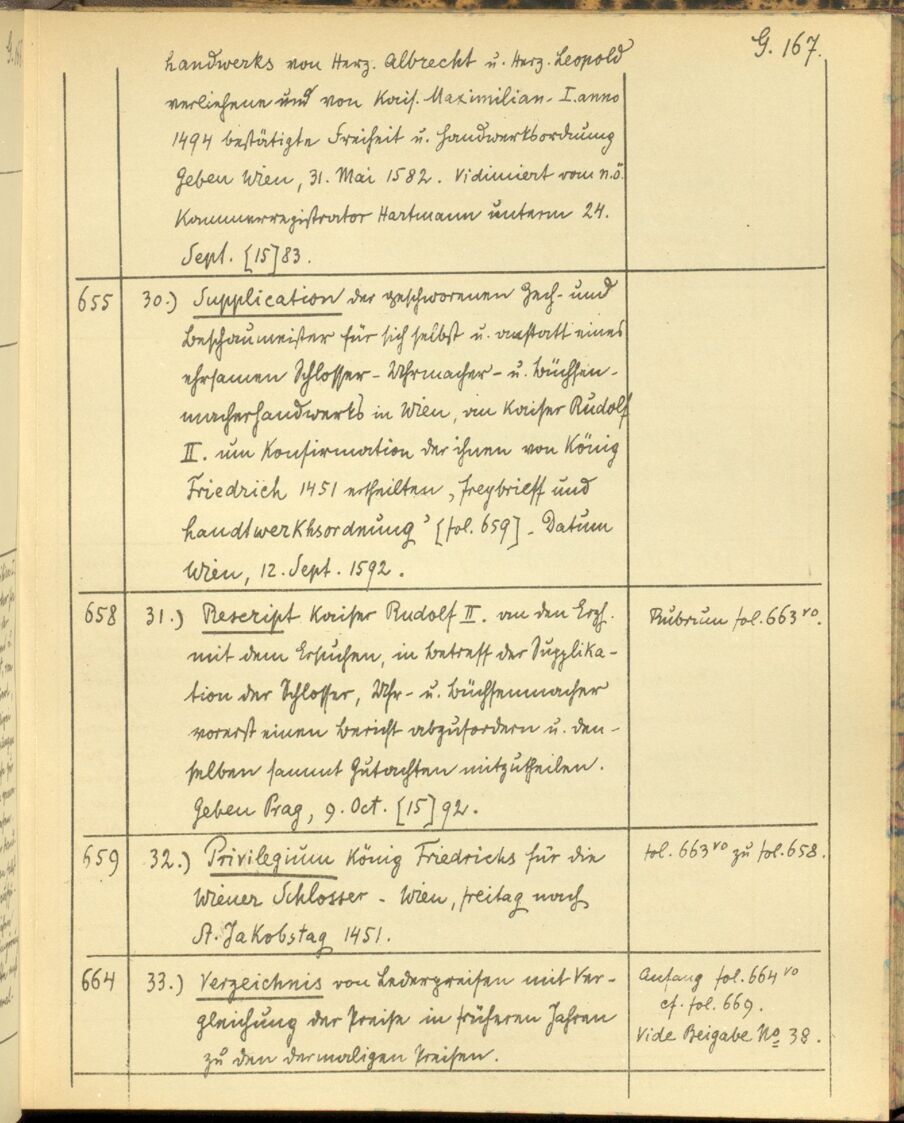 G. 167.
Handwerks von Herz. Albrecht u. Herz. Leopold
verliehene und von Kais. Maximilian I. anno
1494 bestätigte Freiheit u. Handwerksordnung
Geben Wien, 31. Mai 1582. Vidimiert vom n.ö.
Kammerregistrator Hartmann unterm 24.
Sept. [15]83.
655 30.) Supplication der geschworenen Zech- und
Beschaumeister für sich selbst u. anstatt eines
ehrsamen Schlosser- Uhrmacher- u. Büchsen-
macherhandwerks in Wien, an Kaiser Rudolf
II. um Konfirmation der ihnen von König
Friedrich 1451 ertheilten „freybrieff und
handtwerkhsordnung" [fol. 659]. Datum
Wien, 12. Sept. 1592.
658 31.) Rescript Kaiser Rudolf II. an den Erzh. Rubrum fol. 663 vo.
mit dem Ersuchen, in betreff der Supplika-
tion der Schlosser, Uhr- u. Büchsenmacher
vorerst einen Bericht abzufordern u. den-
selben sammt Gutachten mitzutheilen.
Geben Prag, 9. Oct. [15]92.
659 32.) Privilegium König Friedrichs für die fol. 663 vo zu fol. 658.
Wiener Schlosser - Wien, freitag nach
St. Jakobstag 1451.
664 33.) Verzeichnis von Lederpreisen mit Ver- Anfang fol. 664 vo
gleichung der Preise in früheren Jahren cf. fol. 669.
zu den dermaligen Preisen. Vide Beigabe No 38.